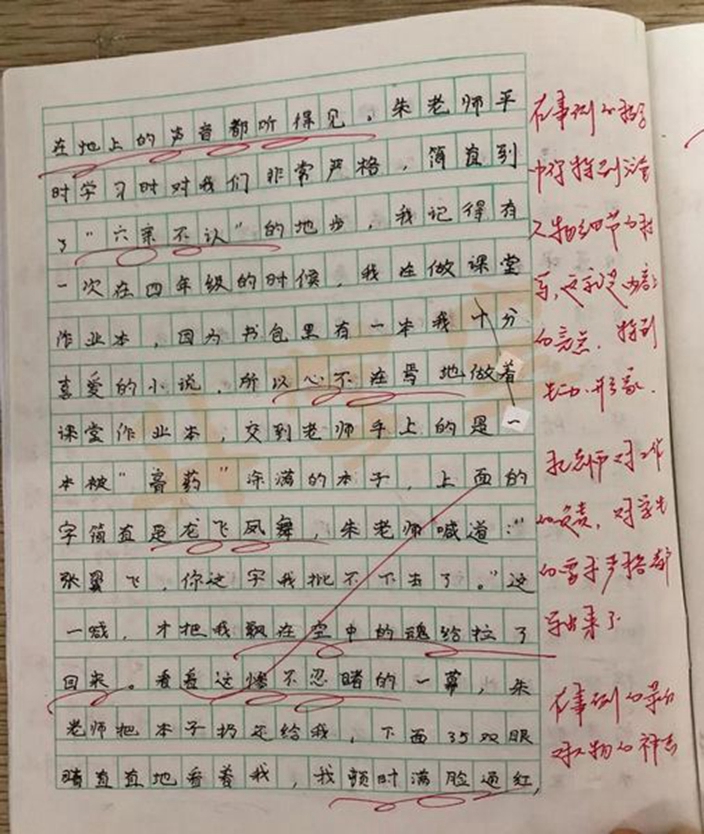 在地上的声音都听得见。朱老师平
时学习时对我们非常严格，简直到
了“六亲不认”的地步，我记得有
一次在四年级的时候，我在做课堂
作业本，因为书包里有一本我十分
喜爱的小说，所以心不在焉地做着
课堂作业本，交到老师手上的是一
本被“音药”涂满的本子，上面的
字简直是龙飞凤舞，朱老师喊道：“
张翼飞，你这字我批不下去了。”这
一喊，才把我飘在空中的魂给拉了
回来。看着这惨不忍睹的一幕，朱
老师把本子扔还给我，下面35双眼
睛直直地看着我，我顿时满脸通红，
在事例的描写
中你特别注意
人物细节的描
写，这就是内容上
的亮点，特别
生动形象.
把老师对工作
的负责，对学生
的要求严格都
写出来了
在事例的部分
对人物的神态